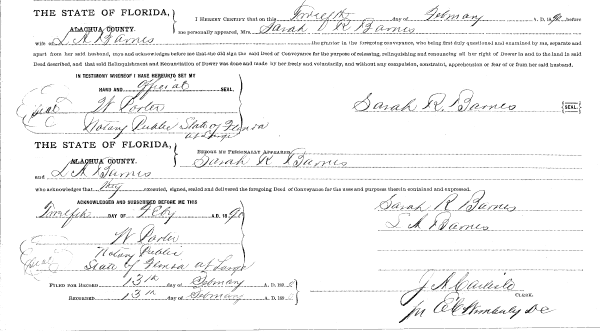 THE STATE OF FLORIDA,
ALACHUA COUNTY.
I HEREBY CERTIFY that on this Twelfth day of February A. D. 1890, before
me personally appeared, Mrs. Sarah R Barnes
wife of L A Barnes the grantor in the foregoing conveyance, who being first duly questioned and examined by me, separate and
apart from her said husband, says and acknowledges before me that she did sign the said Deed of Conveyance for the purpose of releasing, relinquishing and renouncing all her right of Dower in and to the land in said
Deed described, and that said Relinquishment and Renunciation of Dower was done and made by her freely and voluntarily, and without any compulsion, constraint, apprehension or fear of or from her said husband.
IN TESTIMONY WHEREOF I HAVE HEREUNTO SET MY
HAND AND Official SEAL,
Seal W Porter
Sarah R. Barnes SEAL.
Notary Public State of Florida
at Large
THE STATE OF FLORIDA,
ALACHUA COUNTY.
BEFORE ME PERSONALLY APPEARED
Sarah R Barnes
and L A Barnes
who acknowledges that they executed, signed, sealed and delivered the foregoing Deed of Conveyance for the uses and purposes therein contained and expressed.
ACKNOWLEDGED AND SUBSCRIBED BEFORE ME THIS
Twelfth DAY OF Feby A. D. 1890
Sarah R Barnes
L A Barnes
W Porter
Notary Public
Seal State of Florida at Large
FILED FOR RECORD 13th February A. D. 1890
RECORDED 13th February A. D. 1890
CLERK.